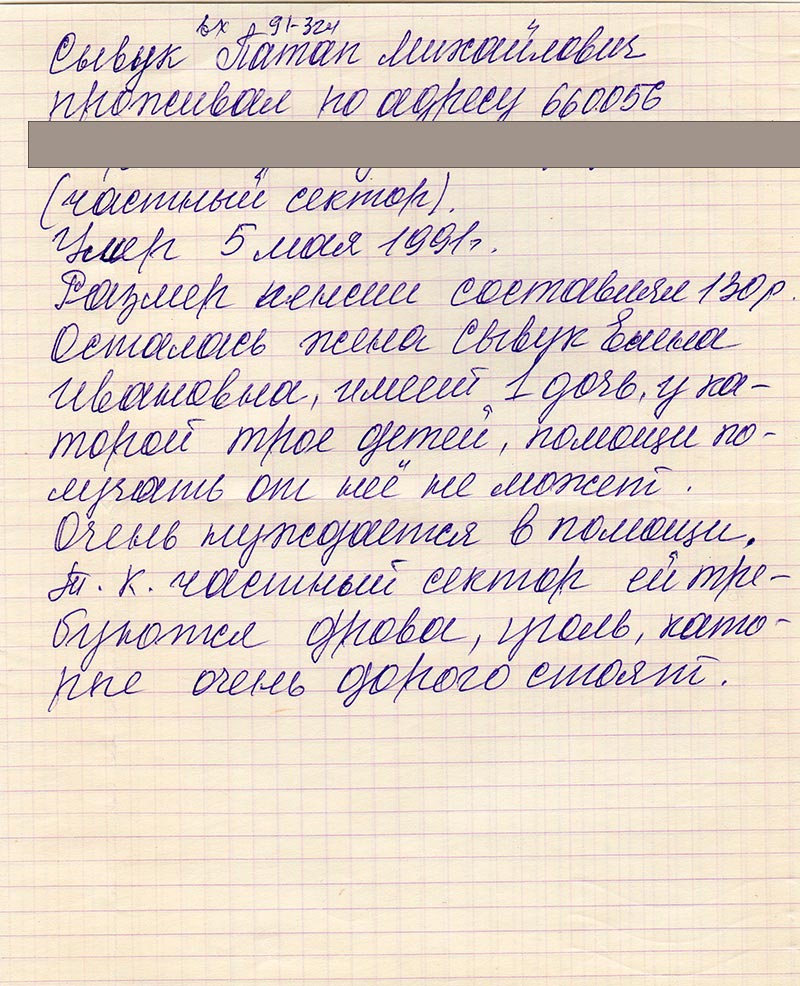 вх 91-324
Сывук Патап Михайлович
проживал по адресу 660056
(частный сектор).
Умер 5 мая 1991г.
Размер пенсии составлял 130 р.
Осталась жена Сывук Елена
Ивановна, имеет 1 дочь, у ка-
торой трое детей, помощи по-
лучать от неё не может.
Очень нуждается в помощи.
Т. к. частный сектор ей тре-
буются дрова, уголь, като-
рые очень дорого стоят.